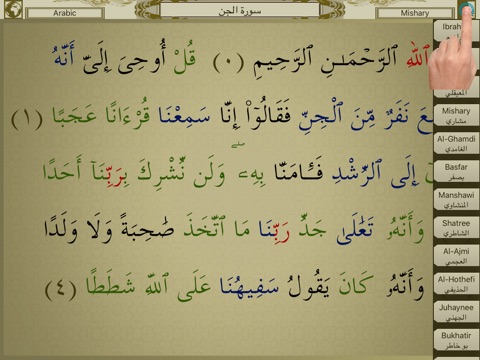 Arabic
سورة الجن
Mishary
Ibrah
ٱللَّهِ ٱلرَّحْمَـٰنِ ٱلرَّحِيمِ (٠) قُلْ أُوحِىَ إِلَىَّ أَنَّهُ
المعيقلي
عَ نَفَرٌ مِّنَ ٱلْجِنِّ فَقَالُوٓا۟ إِنَّا سَمِعْنَا قُرْءَانًا عَجَبًا (١)
Mishary
مشاري
Al-Ghamdi
الغامدي
إِلَى ٱلرُّشْدِ فَـَٔامَنَّا بِهِۦ ۖ وَلَن نُّشْرِكَ بِرَبِّنَآ أَحَدًا
Basfar
بصفر
Manshawi
المنشاوي
وَأَنَّهُۥ تَعَـٰلَىٰ جَدُّ رَبِّنَا مَا ٱتَّخَذَ صَـٰحِبَةً وَلَا وَلَدًا
Shatree
الشاطري
Al-Ajmi
العجمي
وَأَنَّهُۥ كَانَ يَقُولُ سَفِيهُنَا عَلَى ٱللَّهِ شَطَطًا (٤)
Al-Hothefi
الحذيفي
Juhaynee
الجهني
Bukhatir
بو خاطر